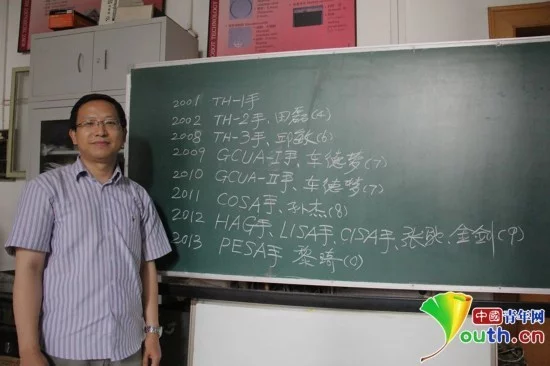 2001 TH-1手
2002 TH-2手、田磊(4)
2008 TH-3手、邱敏(6)
2009 GCUA-I手、车德梦(7)
2010 GCUA-II手、车德梦(7)
2011 COSA手、孙杰(8)
2012 HAG手、LISA手、CISA手、张歆、金剑(9)
2013 PESA手 黎晴(0)
中國青年网
youth.cn